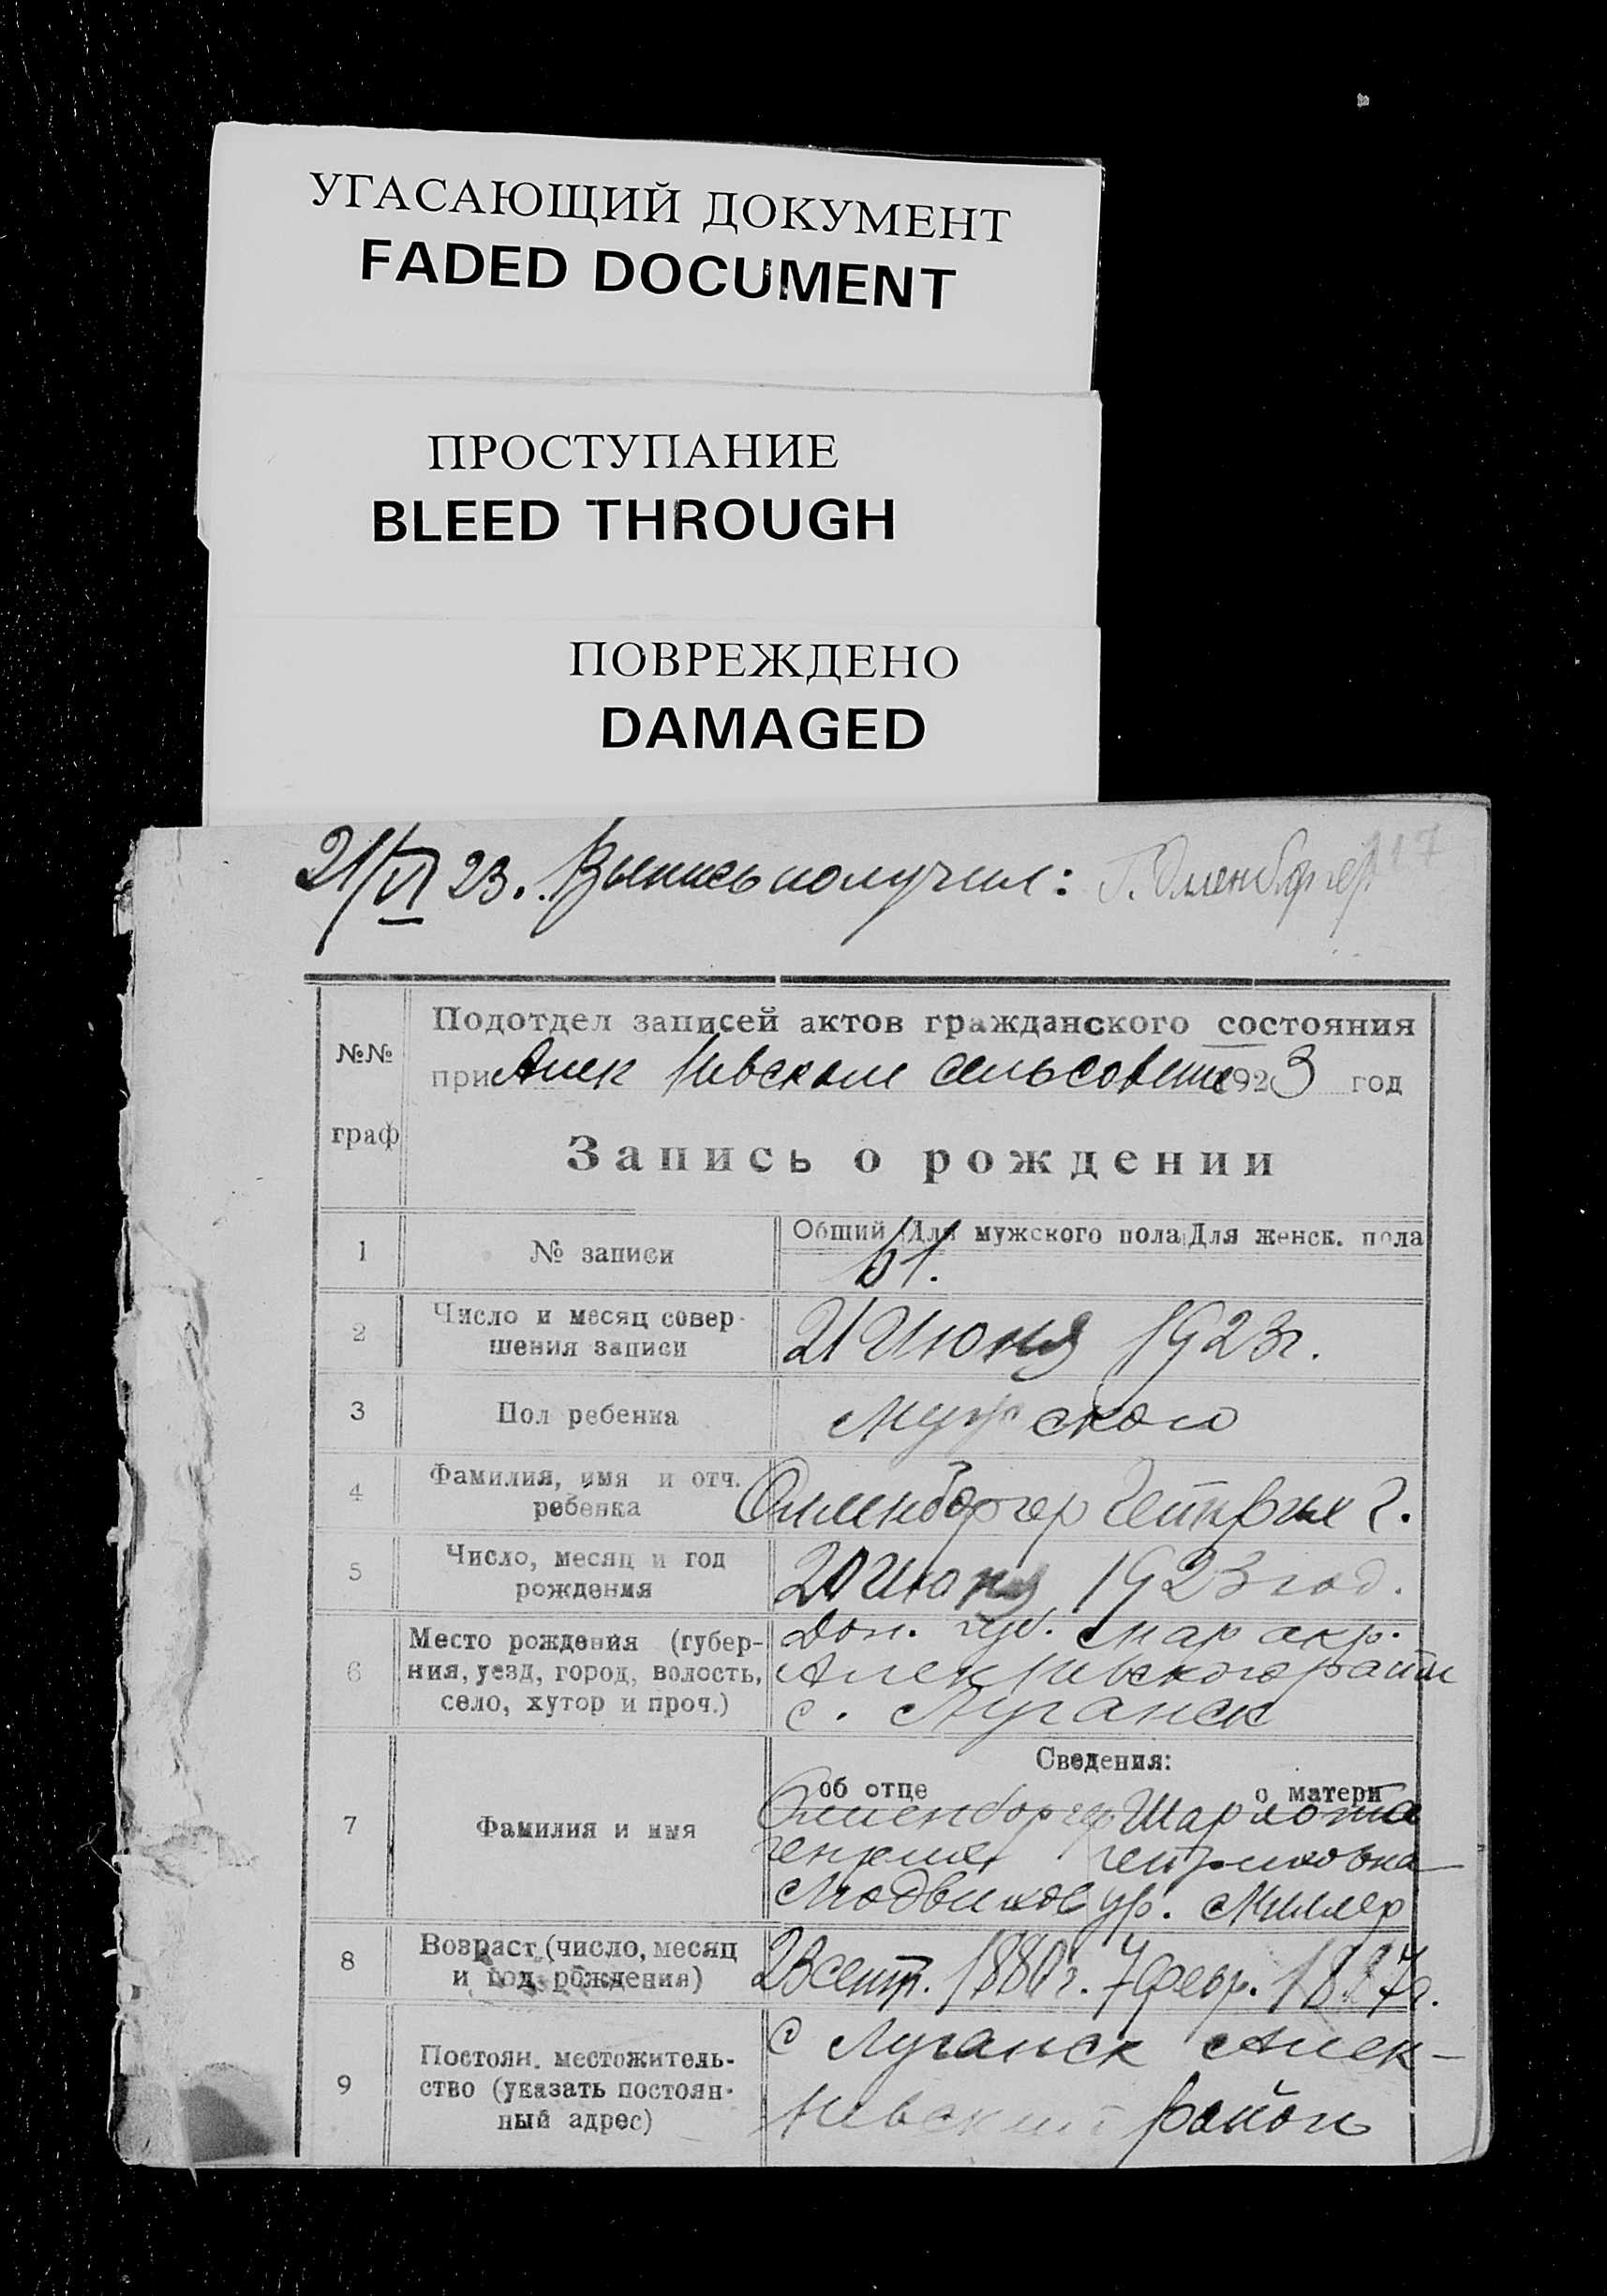 УГАСАЮЩИЙ ДОКУМЕНТ
FADED DOCUMENT
ПРОСТУПАНИЕ
BLEED THROUGH
ПОВРЕЖДЕНО
DAMAGED
17
21/VI 23. Выпись получил: Г. Оленборгер
№№ граф
Подотдел записей актов гражданского состояния
при Алек Невском сельсовете 1923 год
Запись о рождении
1 № записи
Общий Для мужского пола Для женск. пола
61.
2 Число и месяц совер-
шения записи
21 Июня 1923г.
3 Пол ребенка
Мужского
4 Фамилия, имя и отч.
ребенка
Оленборгер Гейнрих Г.
5 Число, месяц и год
рождения
20 Июня 1923 год.
6 Место рождения (губер-
ния, уезд, город, волость,
село, хутор и проч.)
Дон. губ. Мар окр.
Алек Невского район
с. Луганск
7 Фамилия и имя
Сведения:
об отце
о матери
Оленборгер
Шарлота
Гейнриховна
ур. Миллер
8 Возраст (число, месяц
и год рождения)
23 сент. 1880г. 7 февр. 1887г.
9 Постоян. местожитель-
ство (указать постоян-
ный адрес)
с Луганск Алек-
Невский район